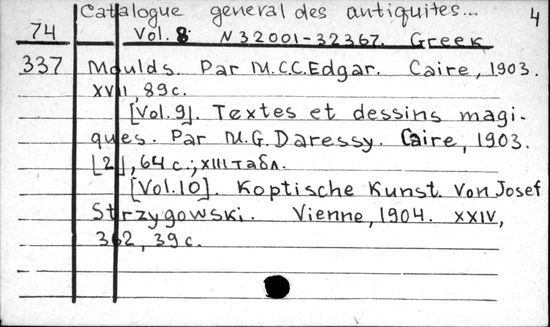 Catalogue general des antiquites... 4
74 Vol. 8 N 32001-32367. Greek
337 Moulds. Par M.C.C.Edgar. Caire, 1903.
XVII, 89 c.
[Vol. 9]. Textes et dessins magi-
ques. Par M.G. Daressy. Caire, 1903.
[2], 64 c.; XIII табл.
[Vol. 10]. Koptische Kunst. Von Josef
Strzygowski. Vienne, 1904. XXIV,
362, 39 c.